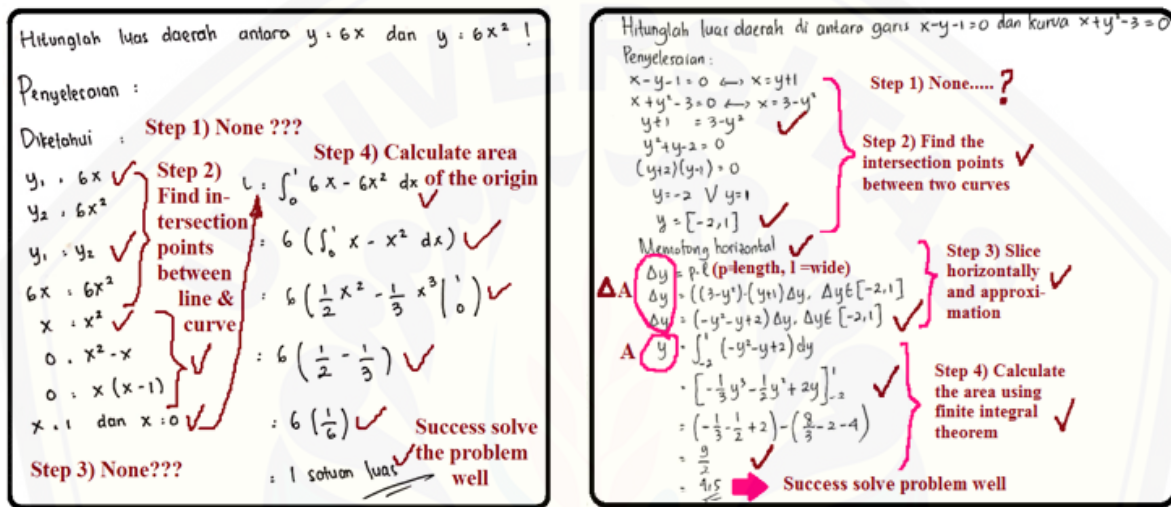 Hitunglah luas daerah antara y = 6x dan y = 6x² !
Penyelesaian :
Diketahui :
Step 1) None ???
y₁ = 6x
y₂ = 6x²
y₁ = y₂
6x = 6x²
x = x²
0 = x² - x
0 = x (x-1)
x = 1 dan x = 0
Step 2)
Find in-
tersection
points
between
line &
curve
Step 3) None???
Step 4) Calculate area
of the origin
L = ∫₀¹ 6x - 6x² dx
= 6 (∫₀¹ x - x² dx)
= 6 (1/2 x² - 1/3 x³ |₀¹)
= 6 (1/2 - 1/3)
= 6 (1/6)
= 1 satuan luas
Success solve
the problem
well
Hitunglah luas daerah di antara garis x-y-1=0 dan kurva x+y²-3=0
Penyelesaian :
x-y-1=0 ↔ x=y+1
x+y²-3=0 ↔ x=3-y²
y+1 = 3-y²
y²+y-2=0
(y+2)(y-1)=0
y=-2 ∨ y=1
y = [-2,1]
Step 1) None..... ?
Step 2) Find the
intersection points
between two curves
Memotong horizontal
Δy = p.l (p=length, l =wide)
ΔA
Δy = ((3-y²)-(y+1)Δy, Δy∈[-2,1]
Δy = (-y²-y+2)Δy, Δy∈[-2,1]
Step 3) Slice
horizontally
and approxi-
mation
A
y = ∫₋₂¹ (-y²-y+2)dy
= [-1/3 y³ - 1/2 y² + 2y]₋₂¹
= (-1/3 - 1/2 + 2) - (8/3 - 2 - 4)
= 9/2
= 4,5
Step 4) Calculate
the area using
finite integral
theorem
Success solve problem well